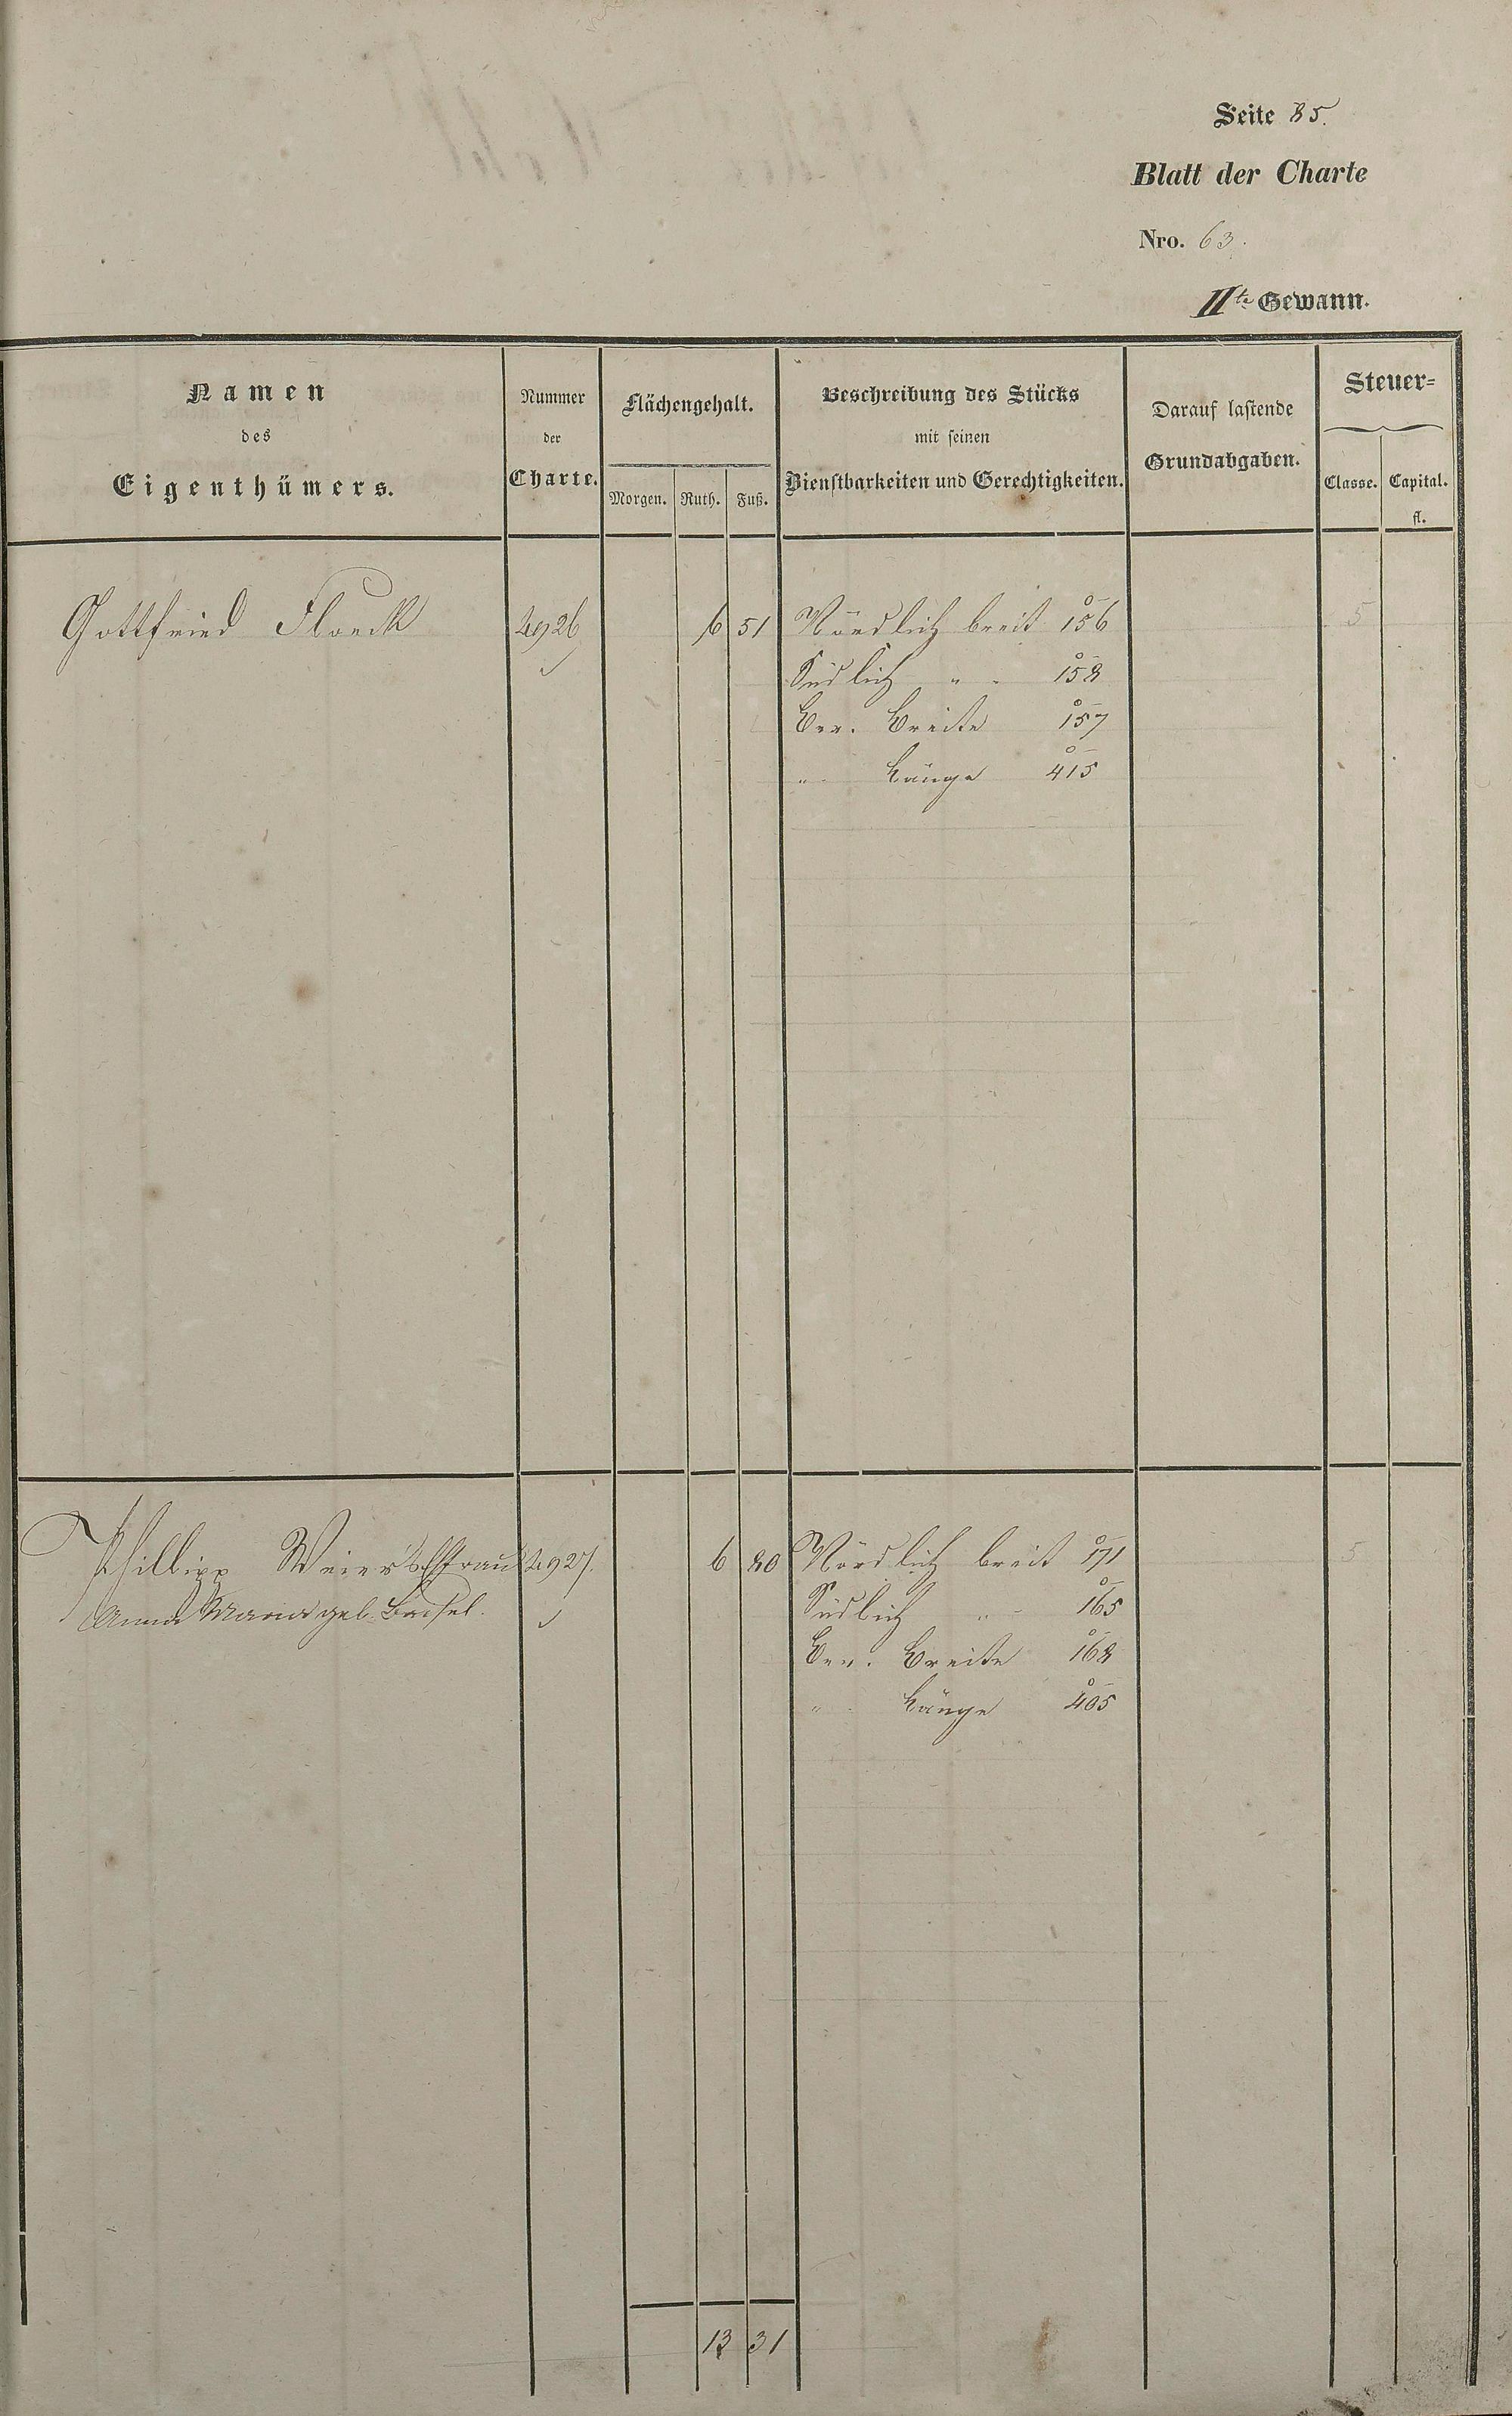 Seite 85.
Blatt der Charte
Nro. 63.
IIte Gewann.
Namen
des
Eigenthümers.
Nummer
der
Charte.
Flächengehalt.
Morgen. Ruth. Fuß.
Beschreibung des Stücks
mit seinen
Dienstbarkeiten und Gerechtigkeiten.
Darauf lastende
Grundabgaben.
Steuer=
Classe. Capital.
fl.
Gottfried Floeck 4926 6 51 Nördlich breit 156 5
Südlich " - 158
Ber. Breite 157
" - Länge 415
Phillipp Weier's Ehfrau 4927. 6 80 Nördlich breit 171 5
Anna Maria geb. Südlich " - 165
Ber. Breite 168
" - Länge 405
13 31